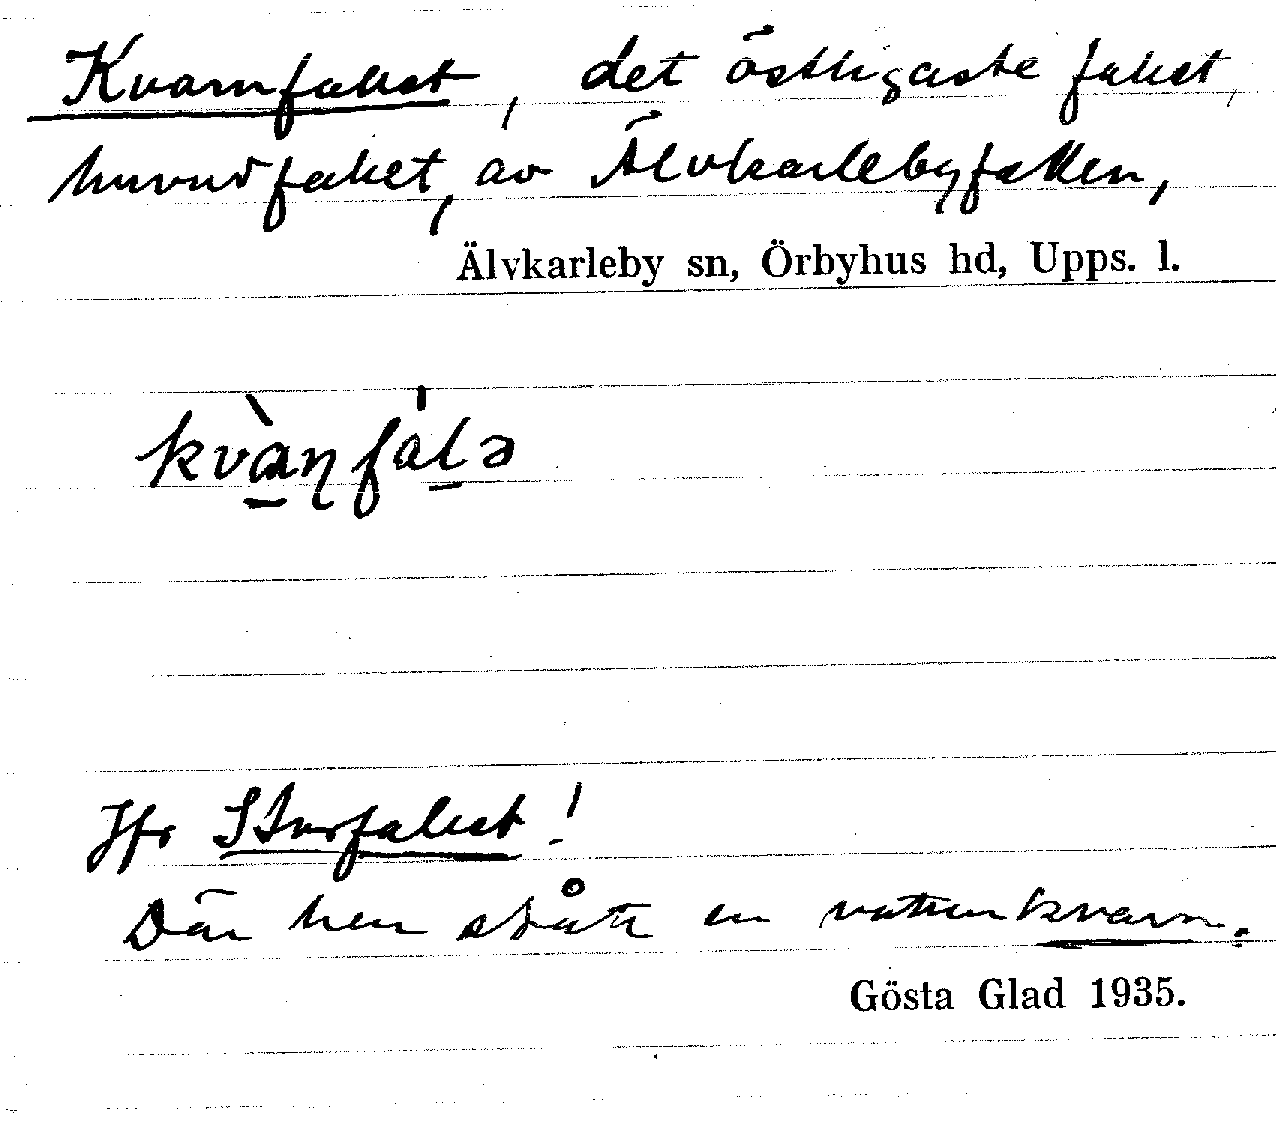 Kvarnfallet, det östligaste fallet,
huvudfallet, av Älvkarlebyfallen,
Älvkarleby sn, Örbyhus hd, Upps. l.
kvàṇfálə
Jfr Storfallet!
Där har stått en vattenkvarn.
Gösta Glad 1935.